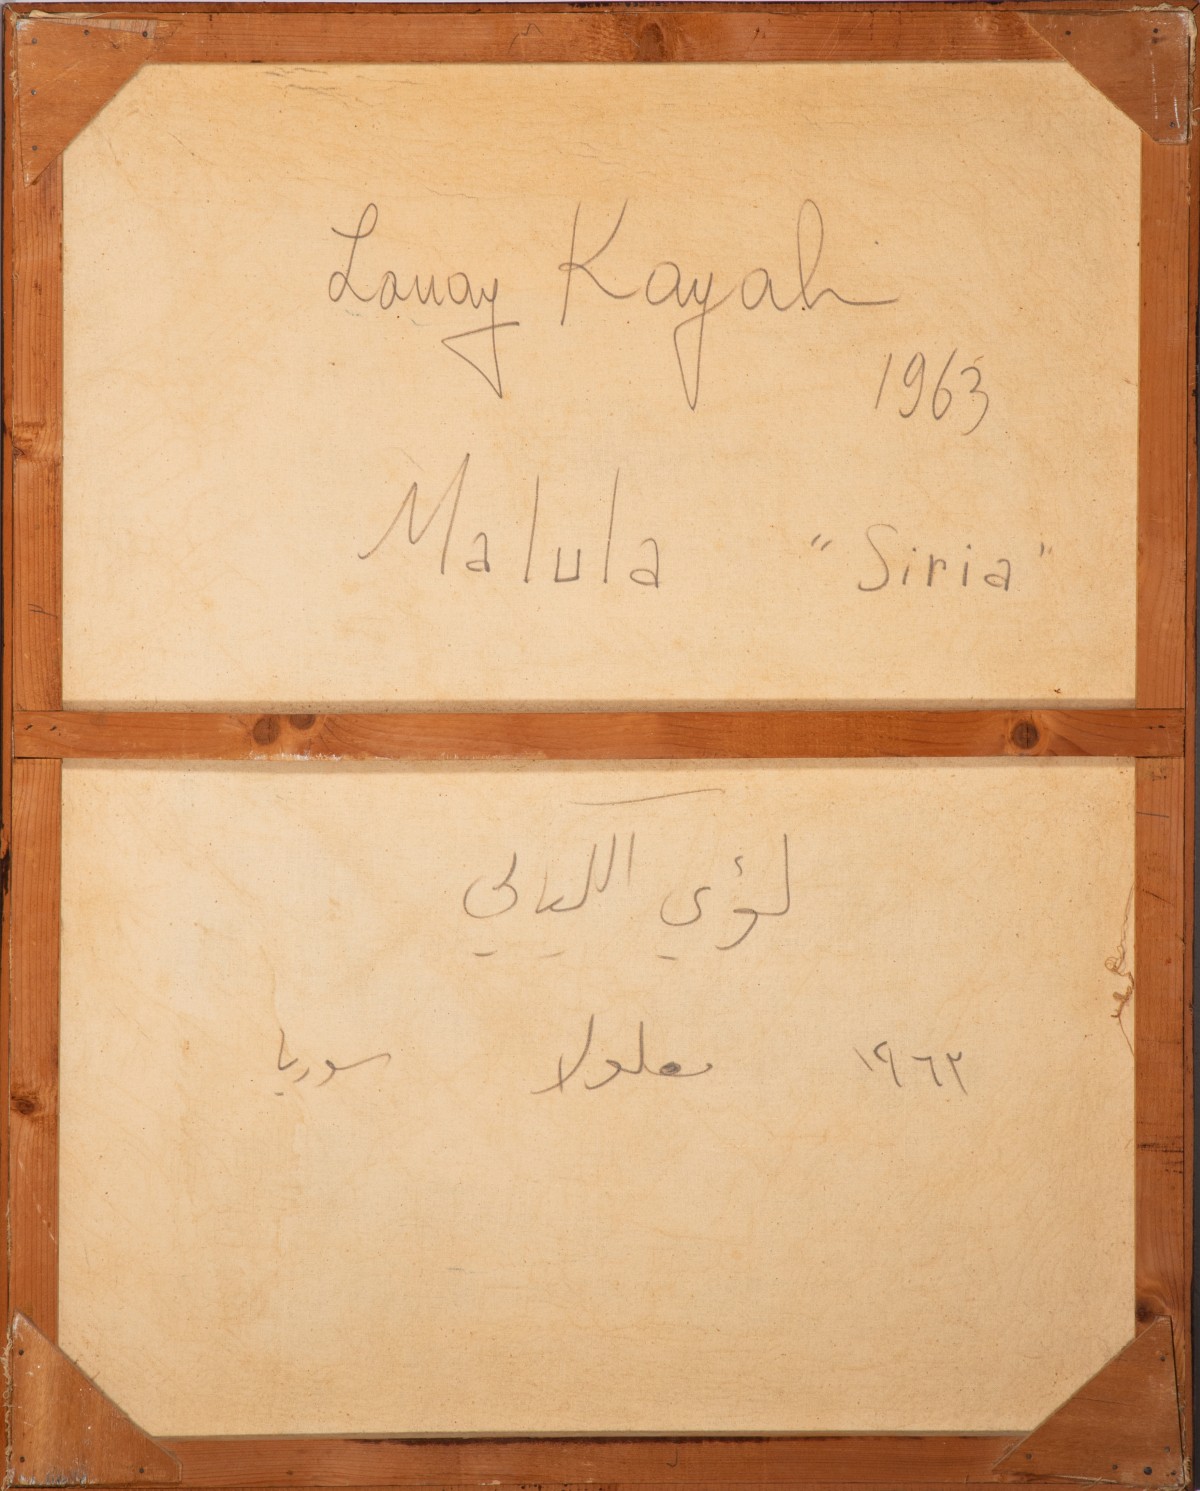 Louay Kayali
1963
Malula "Siria"
لؤي الكيالي
١٩٦٣ معلولا سوريا